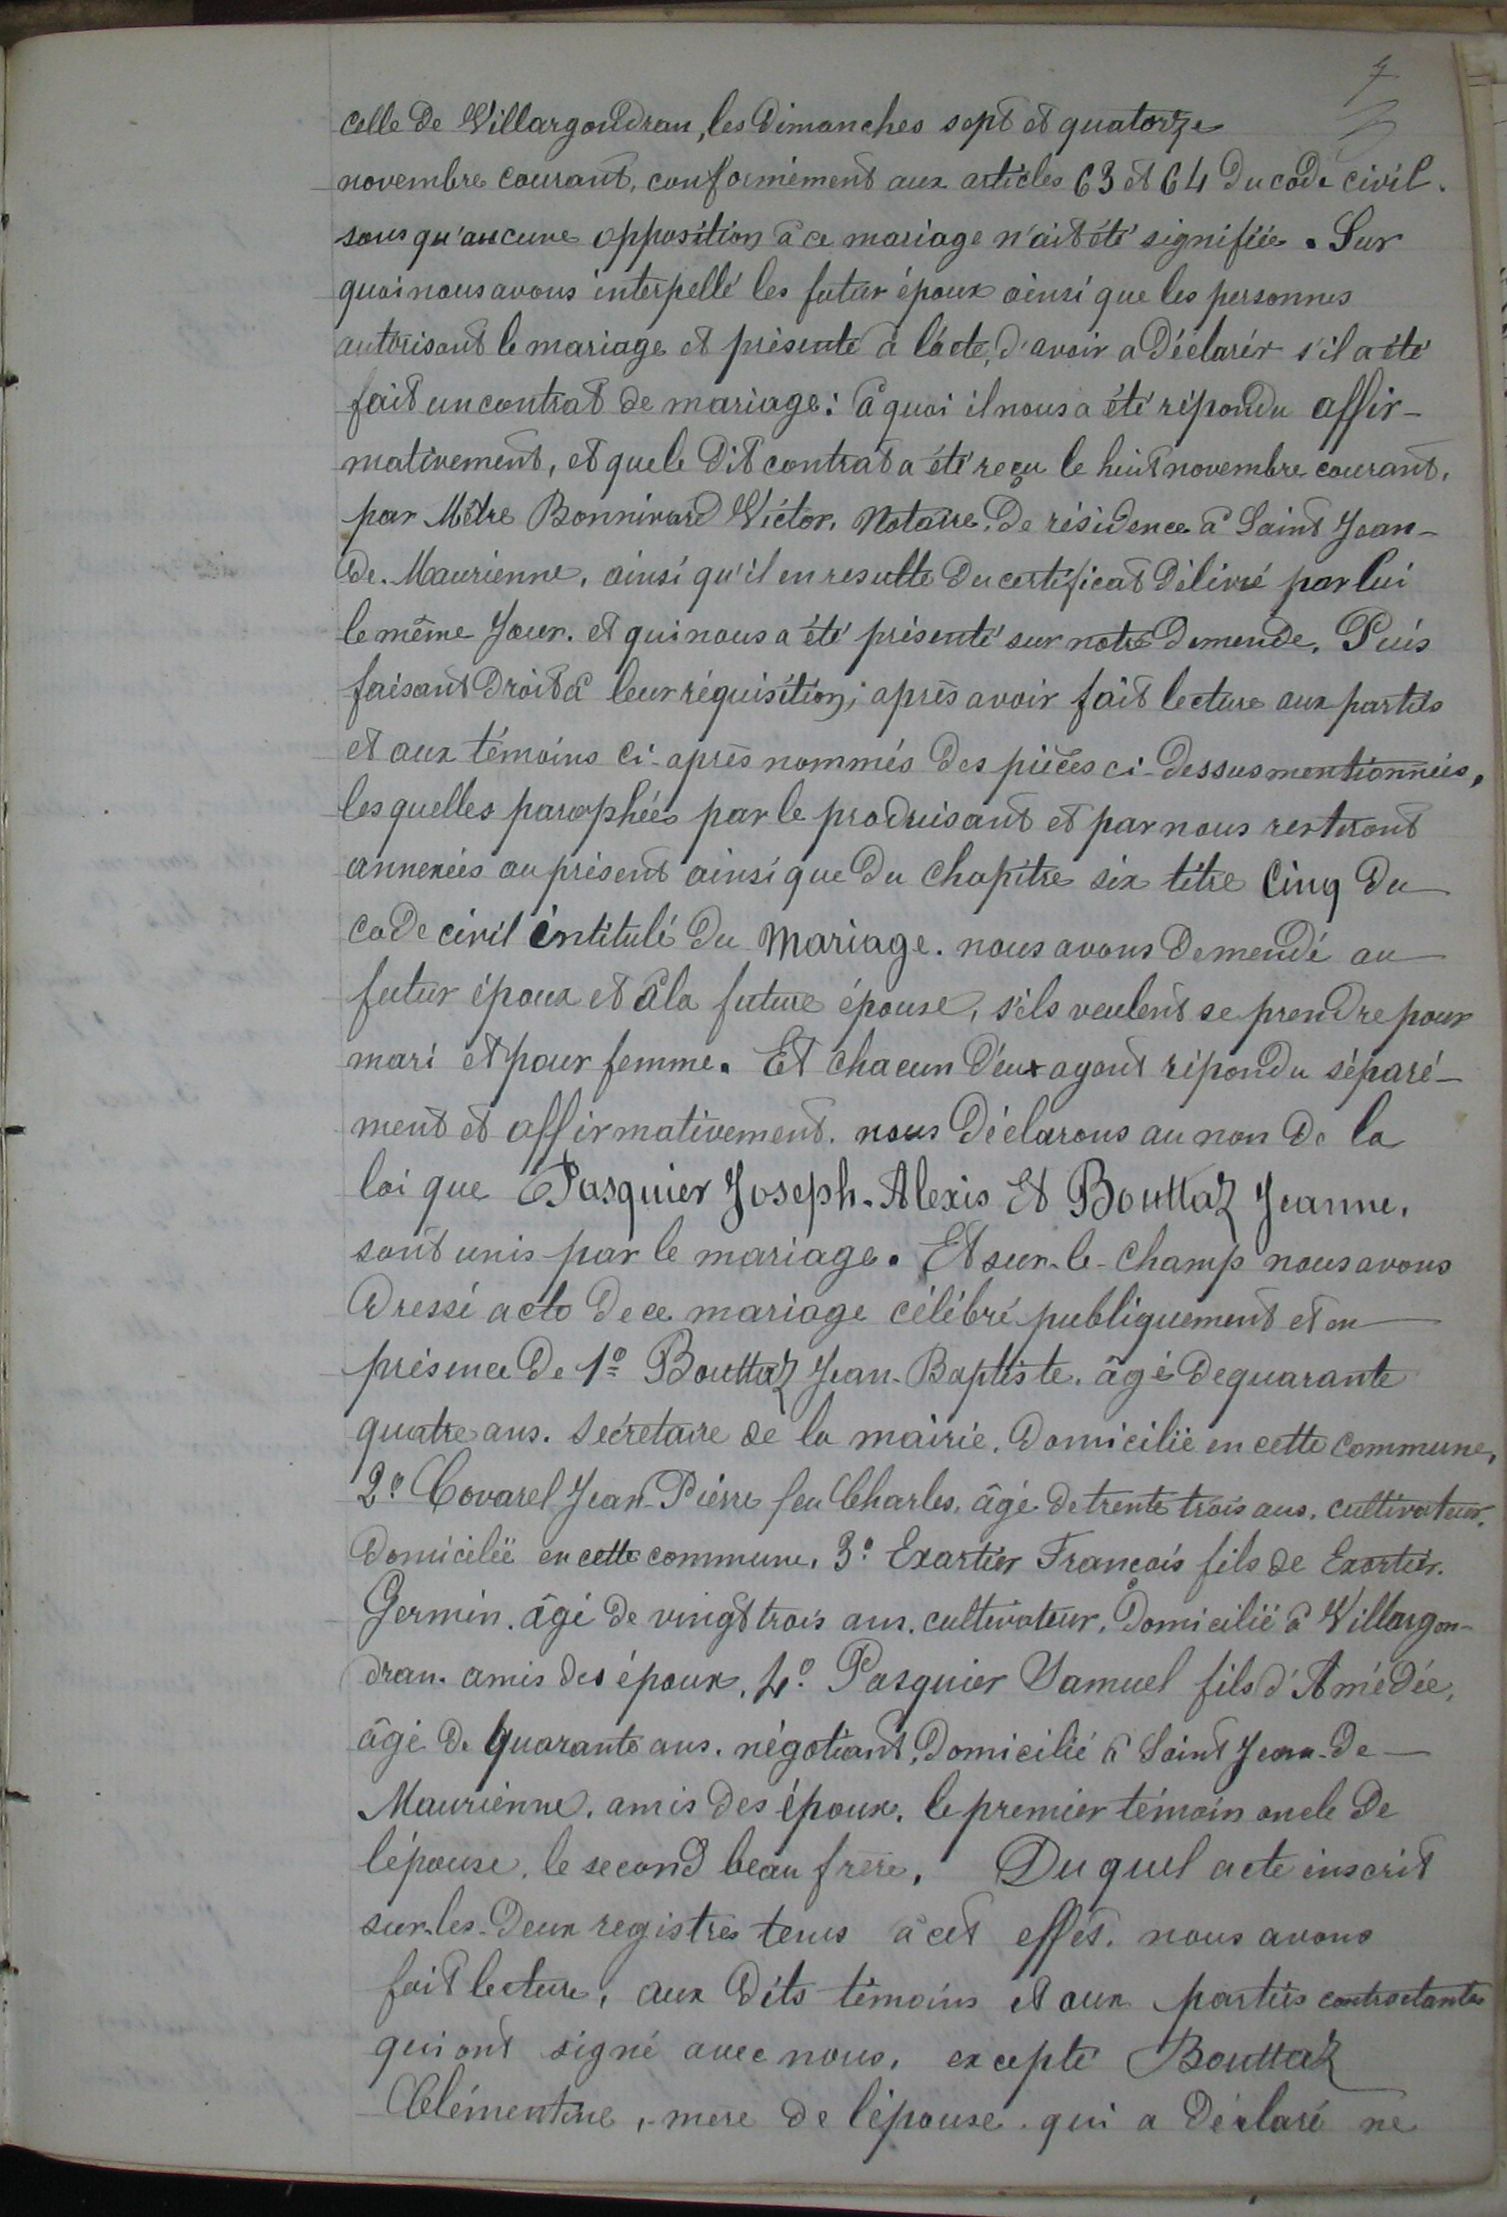 celle de Villargondran, les dimanches sept et quatorze
novembre courant, conformément aux articles 63 et 64 du code civil.
sans qu'aucune opposition à ce mariage n'ait été signifiée. Sur
quoi nous avons interpellé les futur époux ainsi que les personnes
autorisant le mariage et présente à l'acte, d'avoir a déclarér s'il a été
fait un contrat de mariage: à quoi il nous a été répondu affir-
mativement, et que le dit contrat a été reçu le huit novembre courant,
par Mètre Bonnivard Victor, Notaire, de résidence à Saint Jean-
de-Maurienne, ainsi qu'il en resulte du certificat délivré par lui
le même Jour. et qui nous a été présenté sur notre demende. Puis
faisant droit à leur réquisition, après avoir fait lecture aux parties
et aux témoins ci-après nommés des pièces ci-dessus mentionnées,
lesquelles paraphées par le produisant et par nous resteront
annexées au présent ainsi que du chapitre six titre Cinq du
code civil intitulé du Mariage. nous avons demendé au
futur époux et à la future épouse, s'ils veulent se prendre pour
mari et pour femme. Et chacun d'eux ayant répondu séparé-
ment et affirmativement. nous déclarons au non de la
loi que Pasquier Joseph-Alexis Et Bouttaz Jeanne,
sont unis par le mariage. Et sur-le-champ nous avons
dressé acte de ce mariage célébré publiquement et en
présence de 1º Bouttaz Jean-Baptiste, âgé de quarante
quatre ans. secrétaire de la mairie, domicilié en cette commune,
2º Covarel Jean-Pierre feu Charles, âgé de trente trois ans, cultivateur,
domicilié en cette commune, 3º Exartier François fils de Exartier
Germin, âgé de vingt trois ans, cultivateur, domicilié à Villargon-
dran. amis des époux, 4º Pasquier Samuel fils d'Amédée,
âgé de quarante ans. négotiant, domicilié à Saint Jean-de-
Maurienne, amis des époux, le premier témoin oncle de
lépouse, le second beau frère, Duquel acte inscrit
sur les deux registres tenus à cet effet, nous avons
fait lecture, aux dits témoins et aux parties contractantes
qui ont signé avec nous, excepté Bouttaz
Clémentine, mere de lépouse qui a déclaré ne